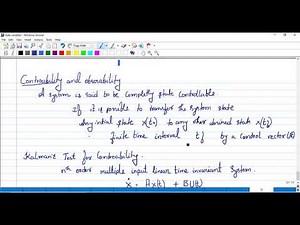 Controability and obserability
A system is said to be completly state controllable
If it is possible to transfer the system state
any initial state x(t₀) to any other desired state x(tf)
finite time interval tf by a control vector (u)
Kalman's Test for Controability.
nth order multiple input linear time invariant system.
ẋ = Ax(t) + BU(t)